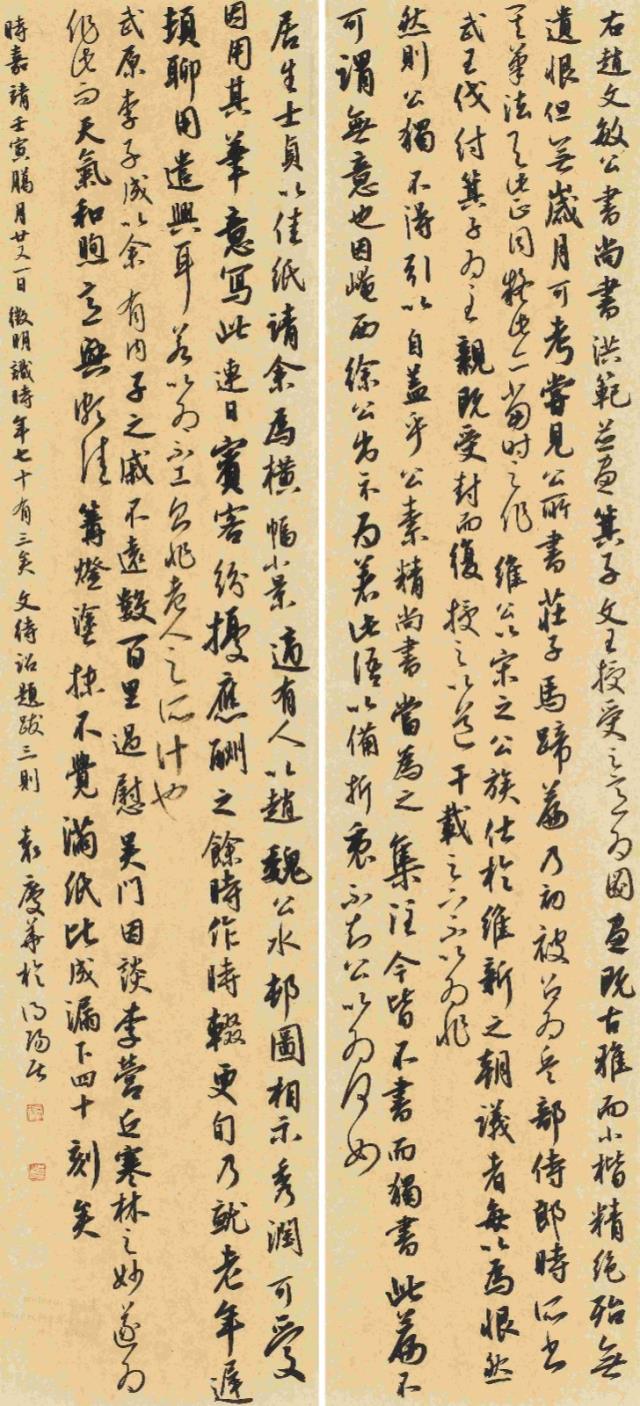 右趙文敏公書尚書洪範并畫箕子文王授受之意為圖畫既古雅而小楷精絕殆無
遺恨但無歲月可考嘗見公所書莊子馬蹄篇乃初被召為兵部侍郎時所書
其筆法與此正同疑此亦當時之作 維公以宋之公族仕於維新之朝議者每以為恨然
武王伐付箕子為主親既受封而復授之以道千載之下不以為非
然則公獨不得引以自蓋乎公素精尚書嘗為之集注今皆不書而獨書此篇不
可謂無意也因崦西徐公出示為著此語以備折衷不知公以為何如
居生士貞以佳紙請余為橫幅小景適有人以趙魏公水邨圖相示秀潤可愛
因用其筆意寫此連日賓客紛擾應酬之餘時作時輟更旬乃就老年遲
頓聊用遣興耳若以為不工則非老人之所計也
武原李子成以余有內子之戚不遠數百里過慰吳門因談李營丘寒林之妙遂為
作此而天氣和煦意興頗佳篝燈塗抹不覺滿紙比成漏下四十刻矣
時嘉靖壬寅臘月廿又一日徵明識時年七十有三矣 文待詔題跋三則 袁慶華於